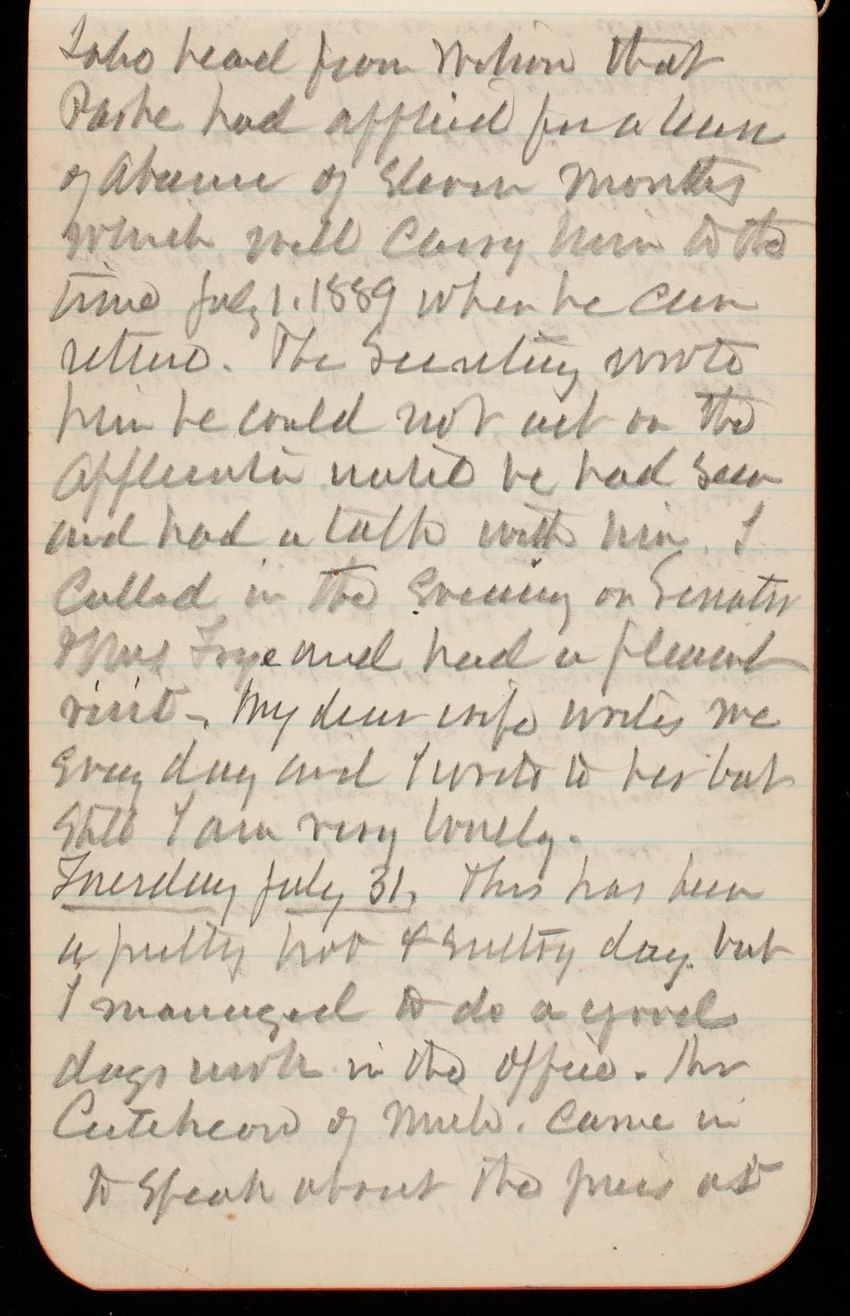 I also heard from Wilson that
Parke had applied for a leave
of absence of Eleven Months
which will carry him to the
time July 1. 1889 when he can
retire. The Secretary wrote
him he could not act on the
Application until he had seen
and had a talk with him. I
Called in the Evening on Senator
& Mrs Frye and had a pleasant
visit -. My dear wife writes me
Every day and I write to her but
Still I am very lonely.
Tuesday July 31, This has been
a pretty hot & Sultry day. but
I managed to do a good
days work in the Office. Mr
Cutcheon of Mich. came in
to Speak about the piers at